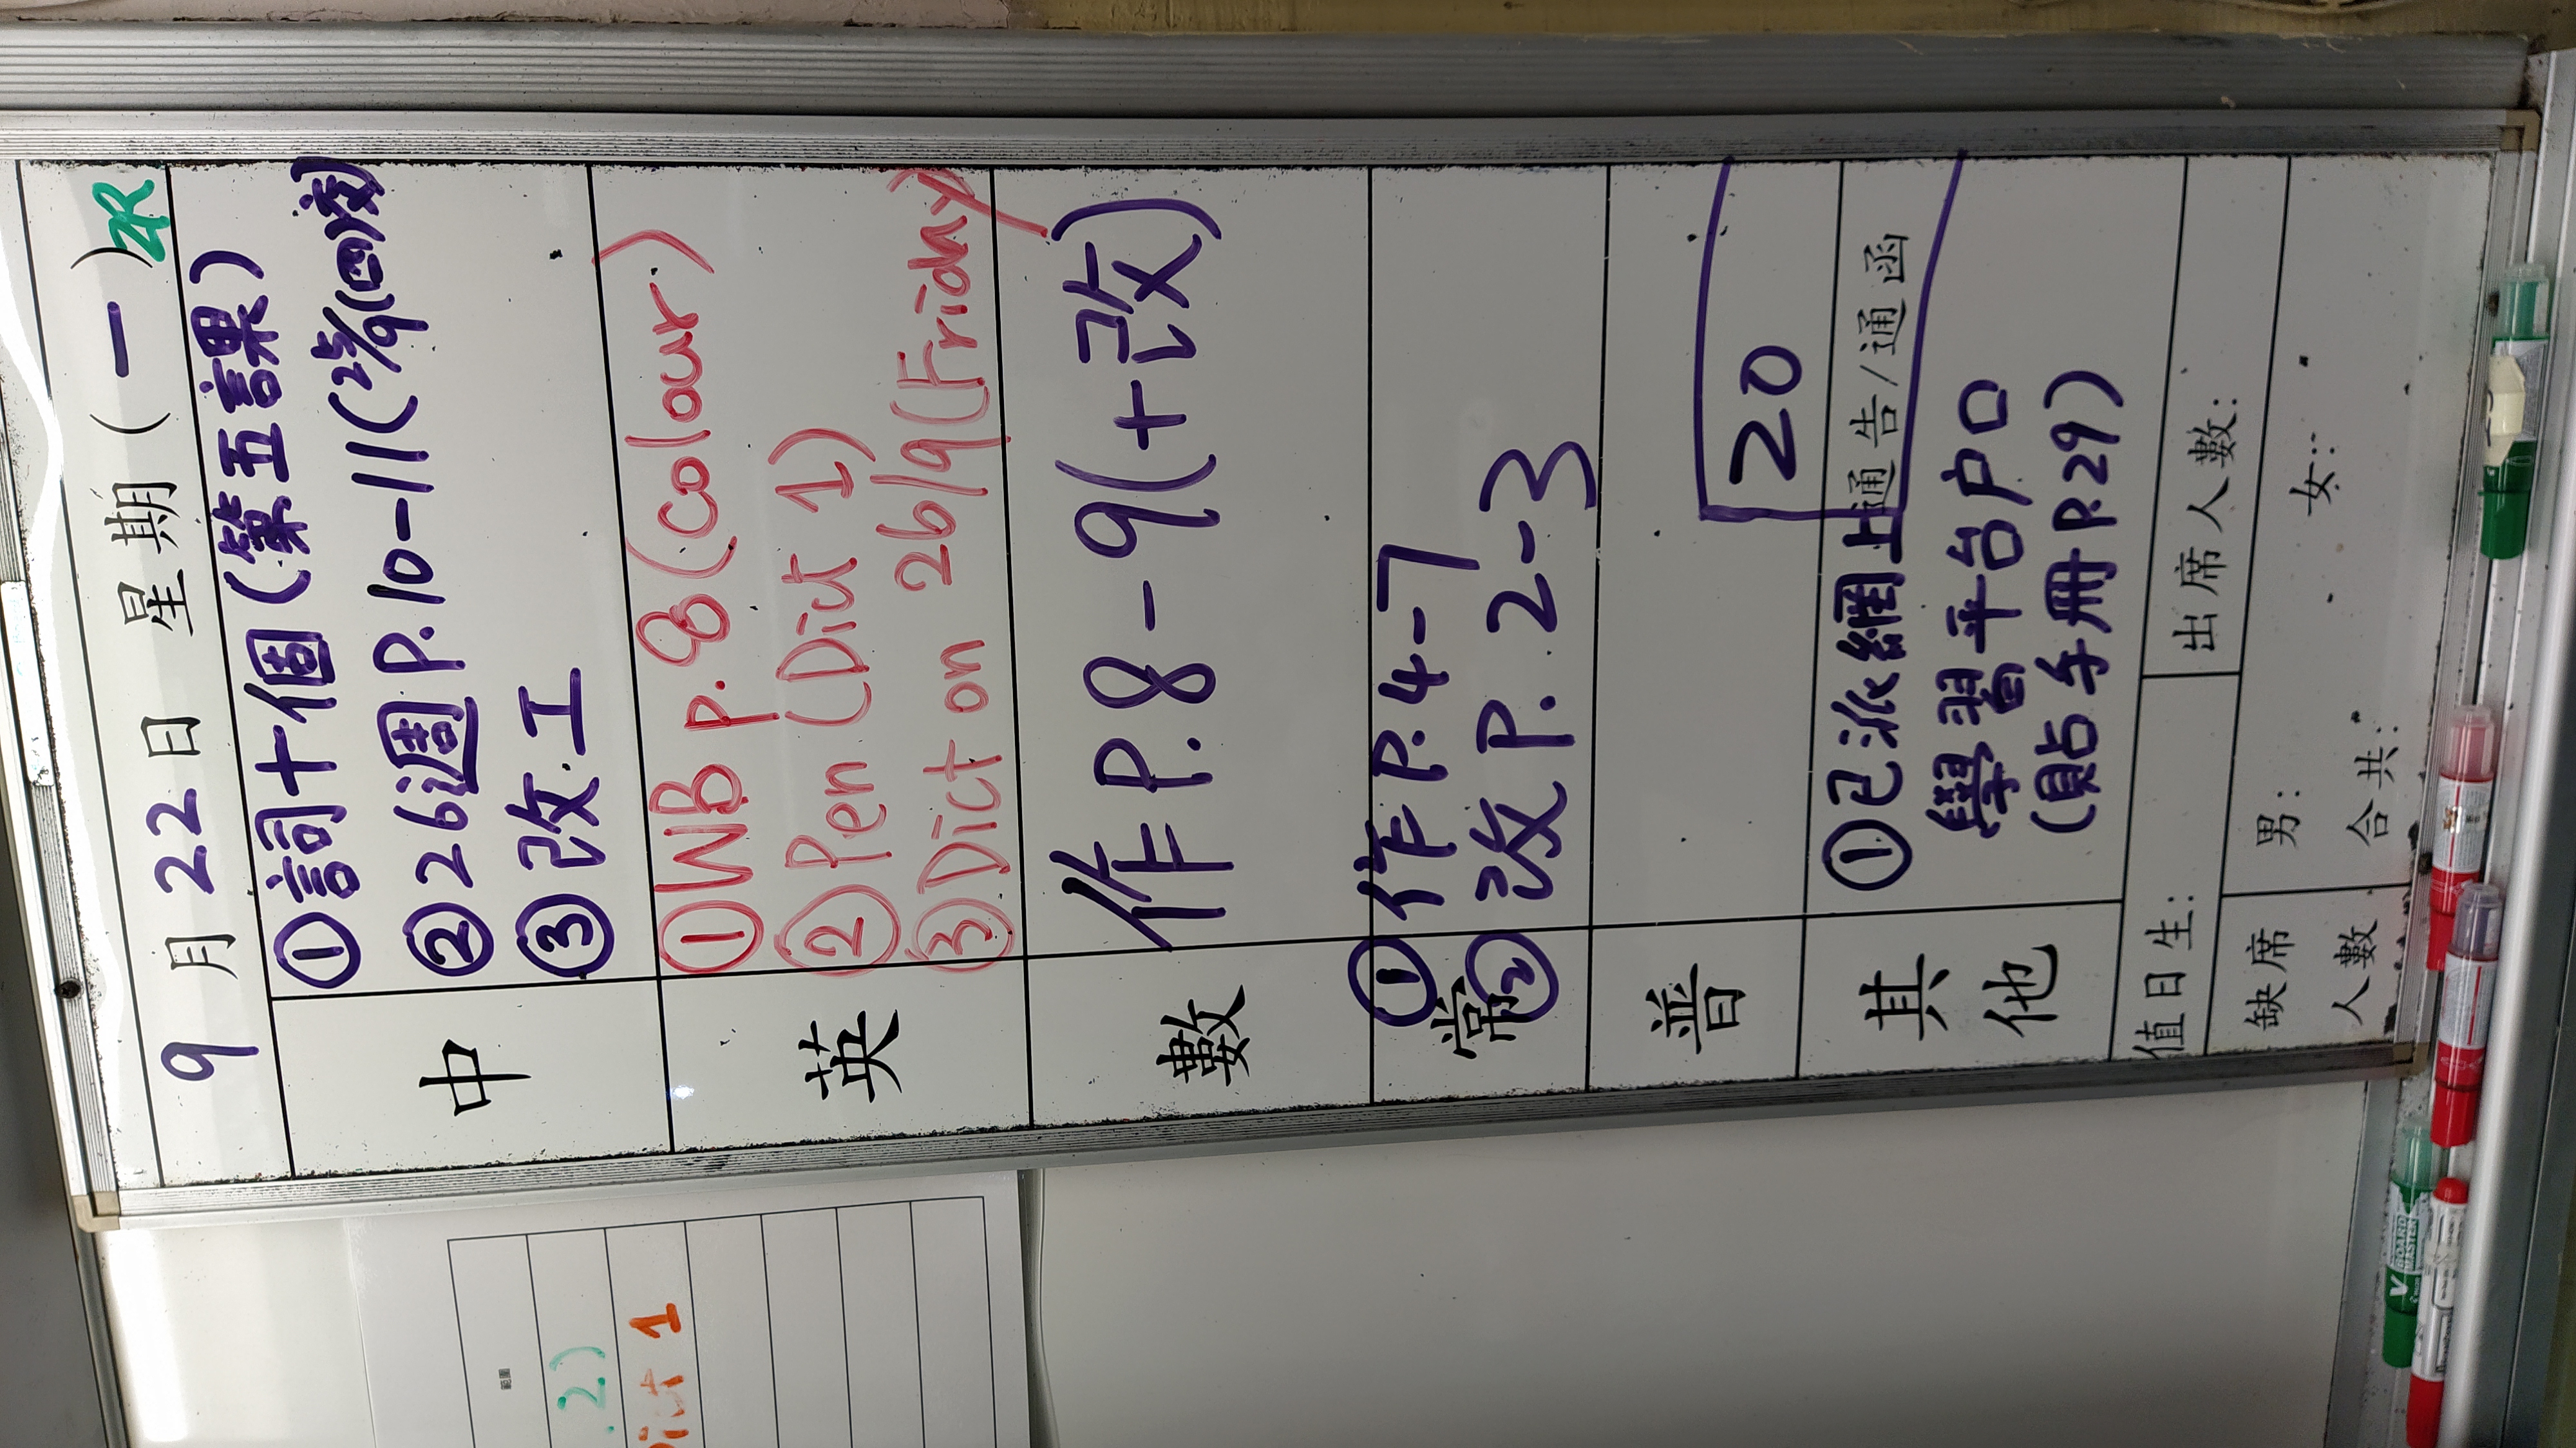 9月22日 星期(一) 2R
中
①詞十個(第五課)
②26週P.10-11(25/9(四)交)
③改.工
英
①WB p.8(colour)
②Pen (Dict 1)
③Dict on 26/9(Friday)
數
作P.8-9(+改)
常
①作P.4-7
②改P.2-3
普
其他
①已派網上
學習平台戶口
(貼手冊P.29)
20
通告/通函
值日生:
出席人數:
缺席人數
男:
女:
合共:
範圍
.2)
Dict 1
BOARD MASTER